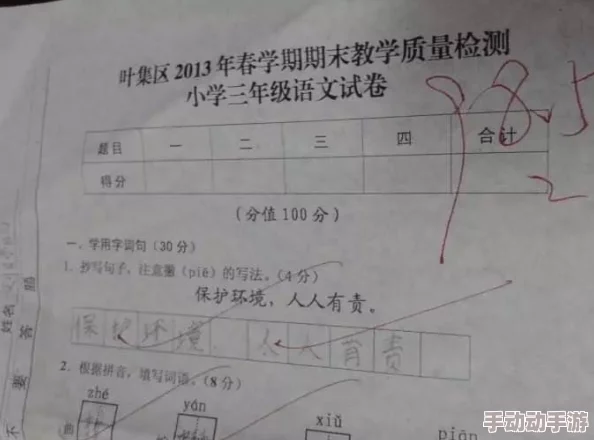 叶集区2013年春学期期末教学质量检测
小学三年级语文试卷
98.5
题目 一 二 三 四 合计
得分
2
(分值100分)
一、学用字词句(30分)
1. 抄写句子,注意撇(piě)的写法。(4分)
保护环境,人人有责。
保护环境 人人有责
2. 根据拼音,填写词语。(8分)
zhé yán xiū piān
姓名
答
要
不
手动动手游